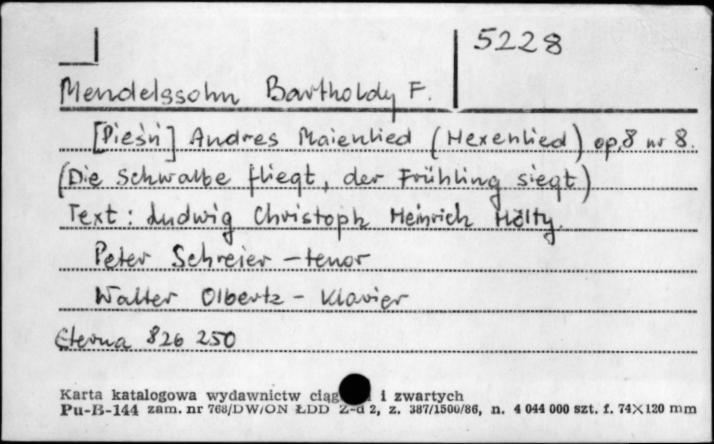 5228
Mendelssohn Bartholdy F.
[Pieśń] Andres Maienlied (Hexenlied) op.8 nr 8.
(Die Schwalbe fliegt, der Frühling siegt)
Text: Ludwig Christoph Heinrich Hölty.
Peter Schreier – tenor
Walter Olbertz – Klavier
Eterna 826 250
Karta katalogowa wydawnictw ciąg i zwartych
Pu-B-144 zam. nr 768/DW/ON ŁDD Z-d 2, z. 387/1500/86, n. 4 044 000 szt. f. 74×120 mm